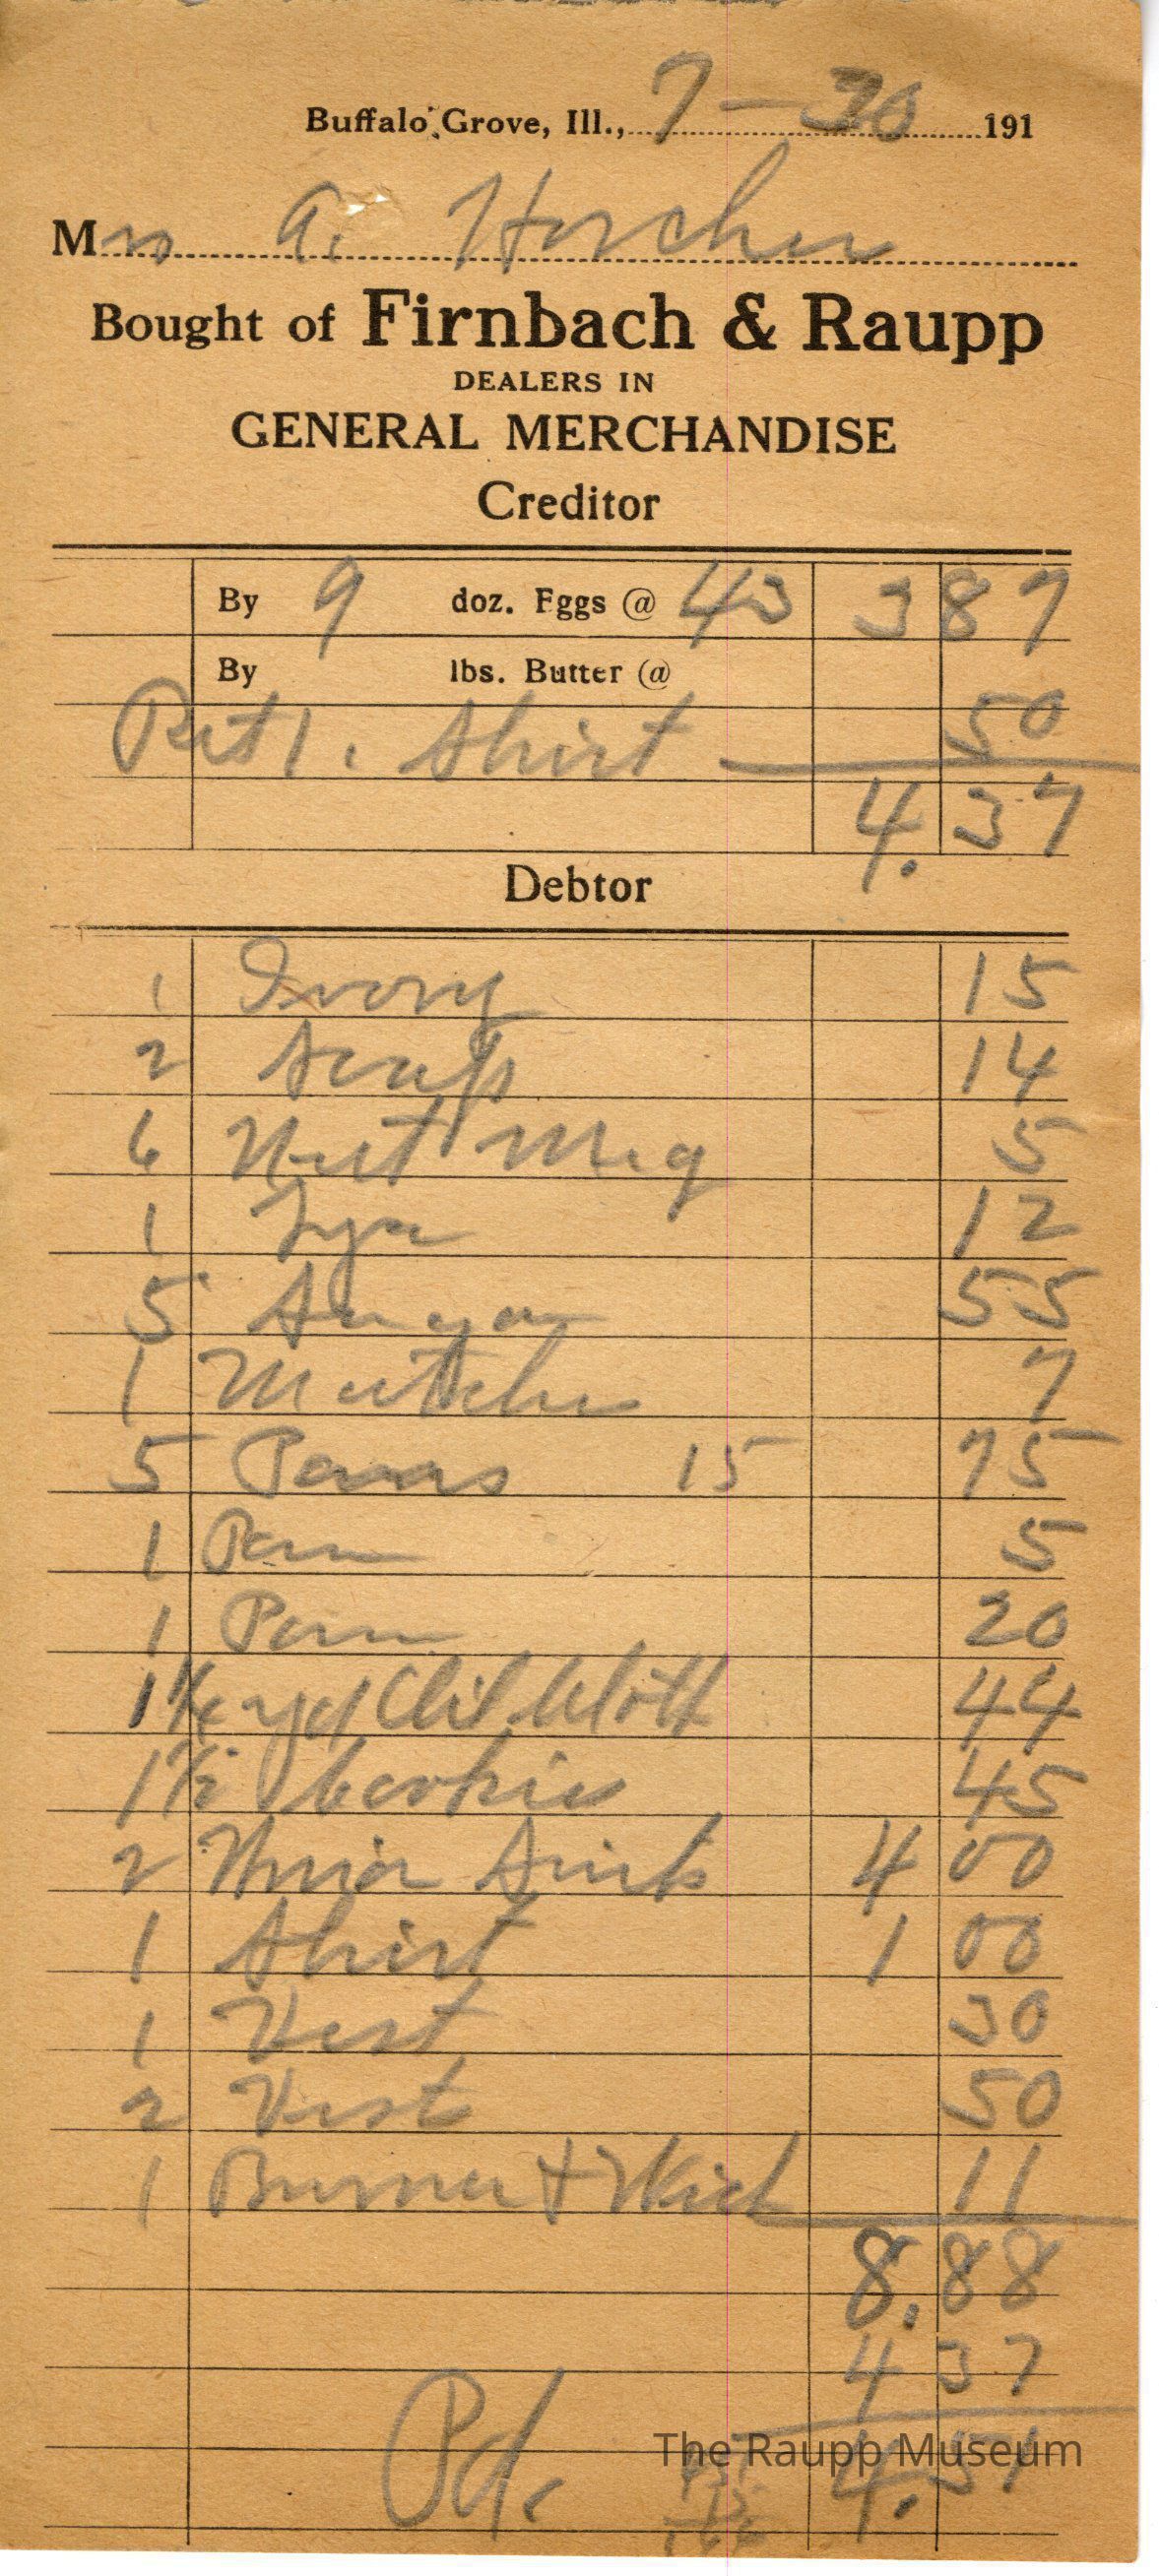 Buffalo Grove, Ill., 7-30 191
Mrs A. Horcher
Bought of Firnbach & Raupp
DEALERS IN
GENERAL MERCHANDISE
Creditor
By 9 doz. Eggs @ 43 3 87
By lbs. Butter @
Ret 1. Shirt 50
4.37
Debtor
1 Ivory 15
2 Scraps 14
6 Nut Meg 5
1 Lye 12
5 Sugar 55
1 Matches 7
5 Pans 15 75
1 Pan 5
1 Pan 20
yd Oil Cloth 44
1 1/2 Cookies 45
2 Union Suits 4 00
1 Shirt 1 00
1 Vest 30
2 Vest 50
1 Burner + Wick 11
8.88
4 37
Pd. 4.51
The Raupp Museum